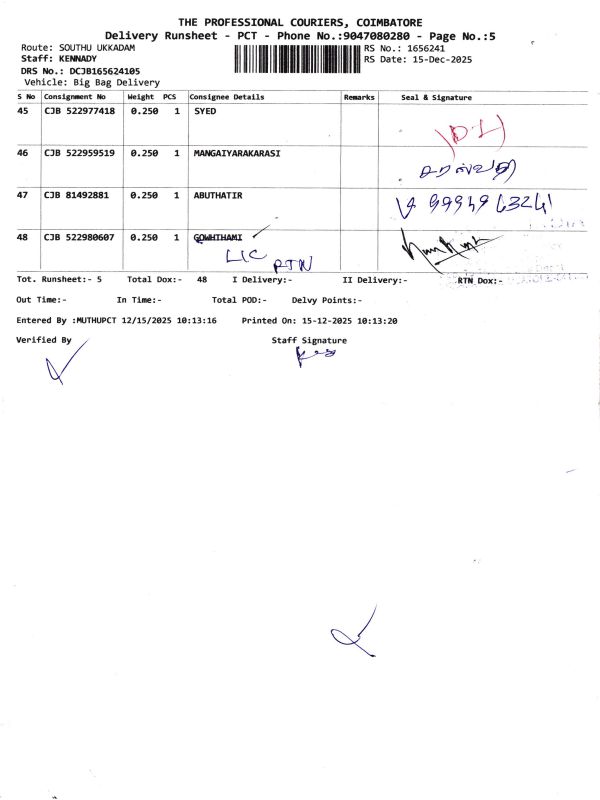 THE PROFESSIONAL COURIERS, COIMBATORE
Delivery Runsheet - PCT - Phone No.:9047080280 - Page No.:5
Route: SOUTHU UKKADAM RS No.: 1656241
Staff: KENNADY RS Date: 15-Dec-2025
DRS No.: DCJB165624105
Vehicle: Big Bag Delivery
S No Consignment No Weight PCS Consignee Details Remarks Seal & Signature
45 CJB 522977418 0.250 1 SYED
46 CJB 522959519 0.250 1 MANGAIYARAKARASI
47 CJB 81492881 0.250 1 ABUTHATIR
48 CJB 522980607 0.250 1 GOWHTHAMI
LIC
RTN
Tot. Runsheet:- 5 Total Dox:- 48 I Delivery:- II Delivery:- RTN Dox:-
Out Time:- In Time:- Total POD:- Delvy Points:-
Entered By :MUTHUPCT 12/15/2025 10:13:16 Printed On: 15-12-2025 10:13:20
Verified By Staff Signature